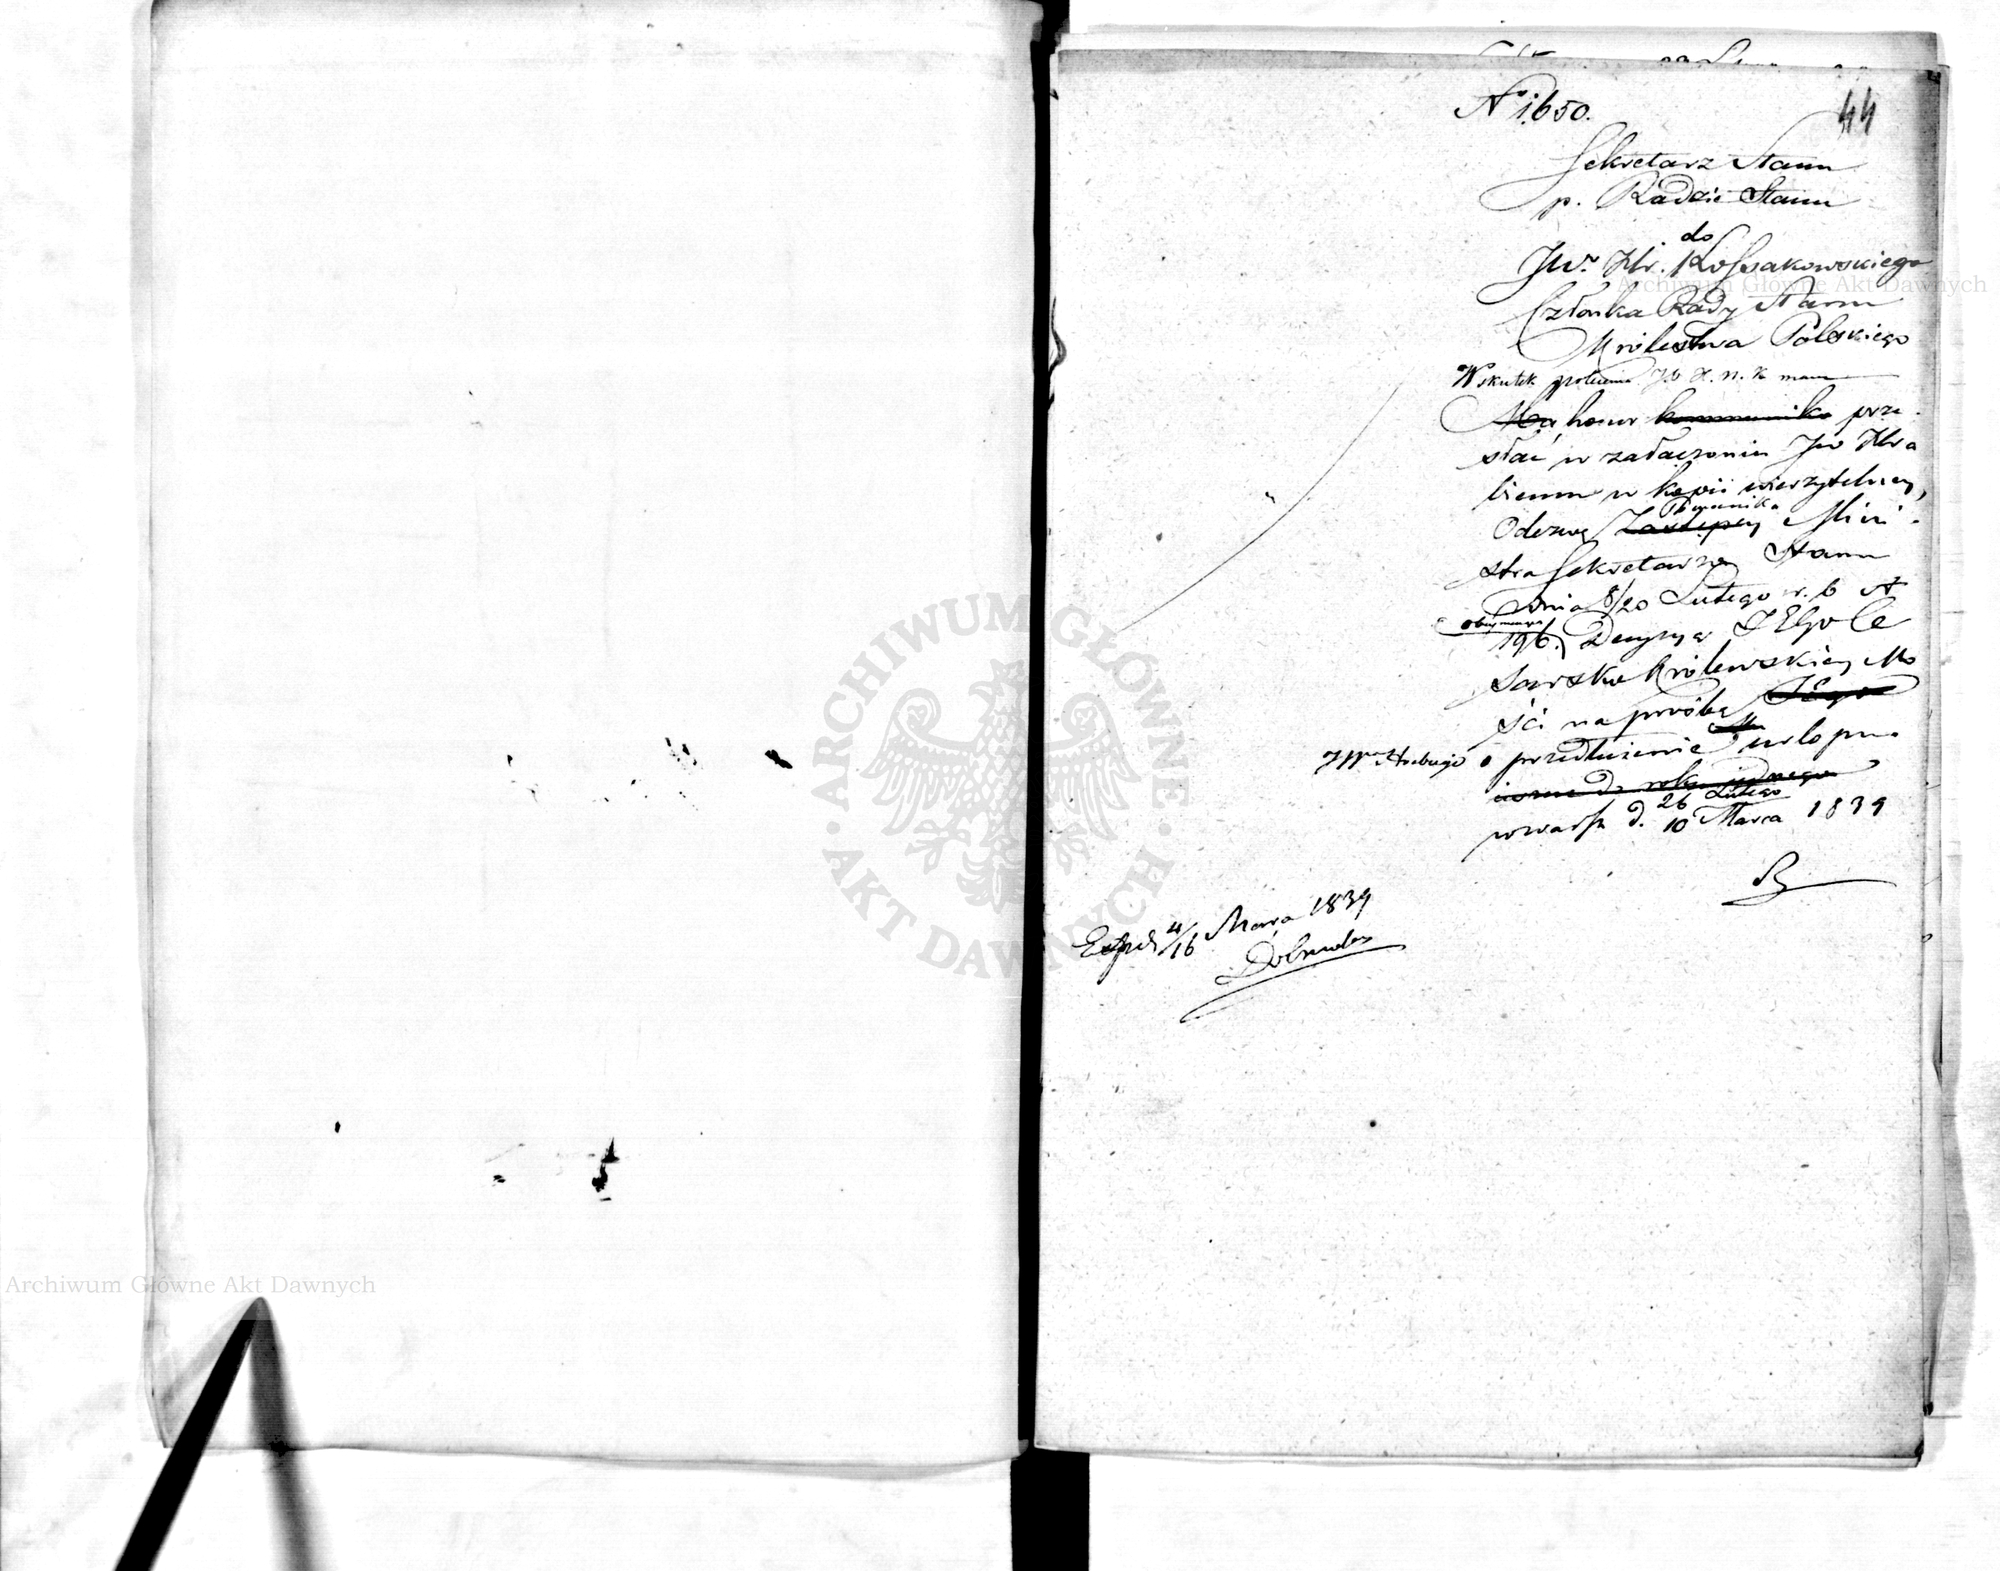 44
N° 1650.
Sekretarz Stanu
p. Radzie Stanu
do
JW. Hr. Kossakowskiego
Członka Rady Stanu
Królestwa Polskiego
W skutek polecenia mam
honor prze-
słać w załączeniu JW Hra
biemu w kopii wierzytelnej,
Odezwę Ministra
stra Sekretarza Stanu
dnia 8/20 Lutego r. b N
196. obejmującą Decyzyą JEgo Ce
sarsko Królewskiey Mo
ści na prośbę
JW Hrabiego o przedłużenie urlopu
w Warsz d. 26 Lutego
10 Marca 1839
Exped 4/16 Marca 1839
Archiwum Główne Akt Dawnych
Archiwum Główne Akt Dawnych
ARCHIWUM GŁÓWNE · AKT DAWNYCH ·